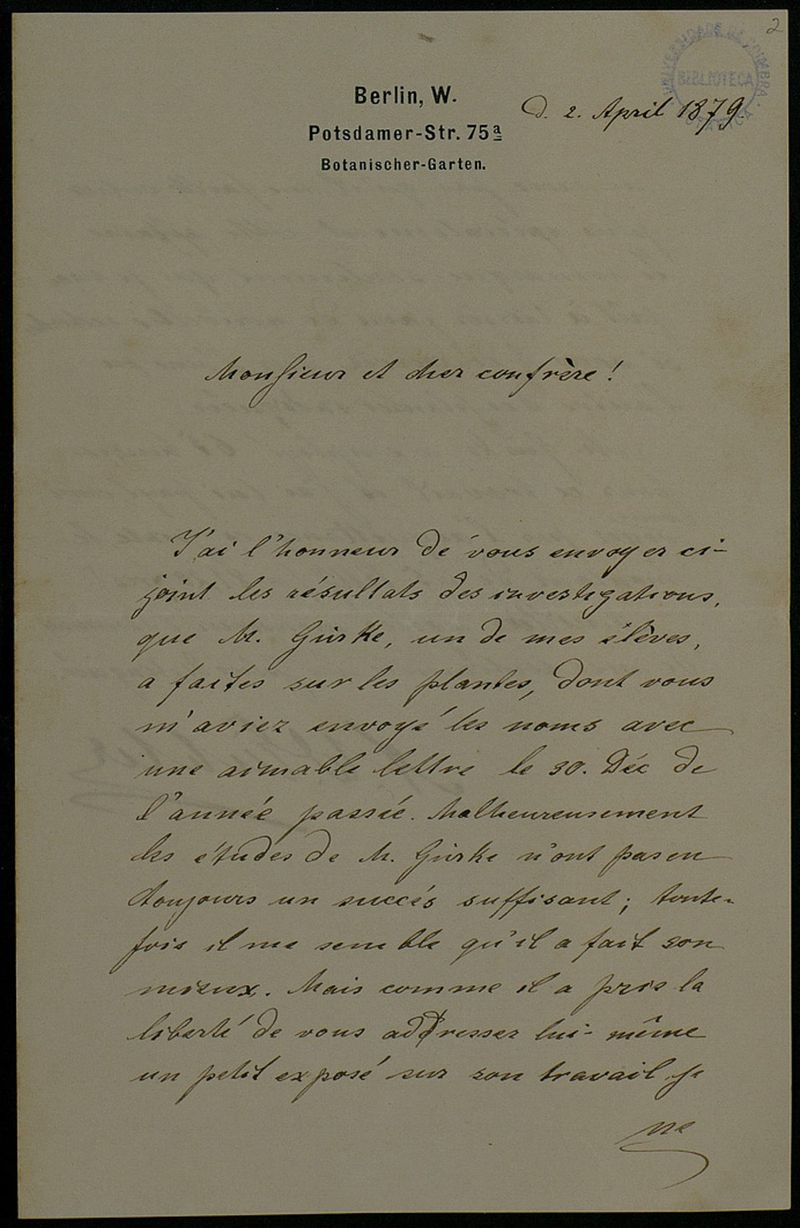 2
UNIVERSIDADE DE COIMBRA
BIBLIOTECA
Berlin, W.
Potsdamer-Str. 75a
Botanischer-Garten.
d. 2. April 1879.
Monsieur et cher confrère!
J'ai l'honneur de vous envoyer ci-
joint les résultats des investigations,
que M. Gürke, un de mes élèves,
a faites sur les plantes, dont vous
m'aviez envoyé les noms avec
une aimable lettre le 30. Déc de
l'année passée. Malheureusement
les études de M. Gürke n'ont pas eu
toujours un succés suffisant; toute-
fois il me semble qu'il a fait son
mieux. Mais comme il a pris la
liberté de vous addresser lui-même
un petit exposé sur son travail je
ne